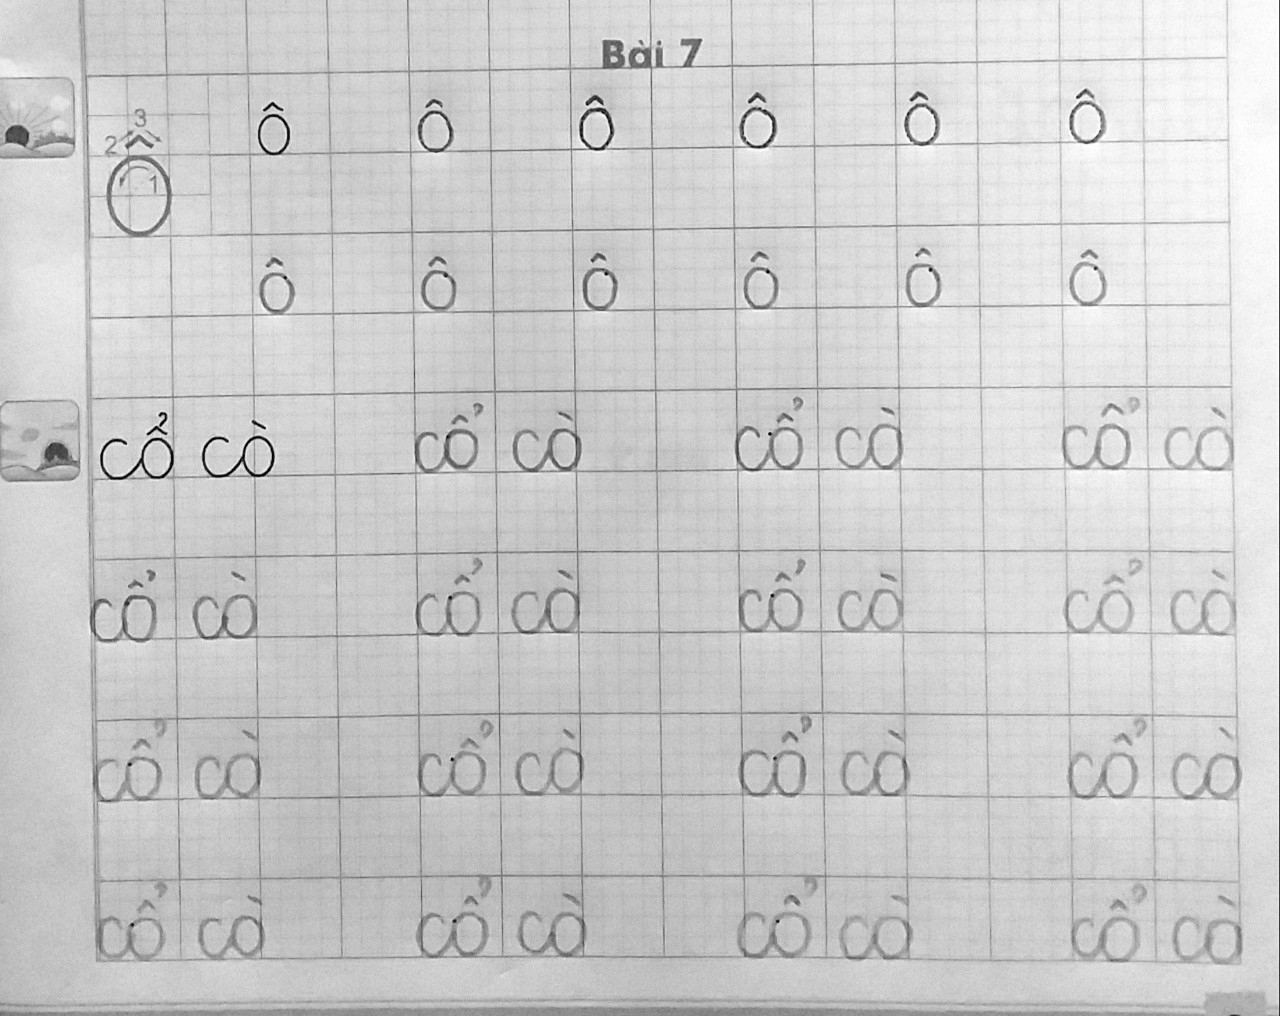 Bài 7
3
2 ô ô ô ô ô ô ô
1
ô ô ô ô ô ô
cổ cò cổ cò cổ cò cổ cò
cổ cò cổ cò cổ cò cổ cò
cổ cò cổ cò cổ cò cổ cò
cổ cò cổ cò cổ cò cổ cò